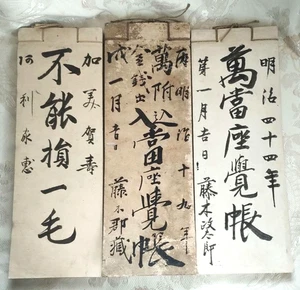 明治四十四年
萬當座覺帳
第一月吉日 藤木政太郎
丙明治十九年
萬附込
金銭出入當座覺帳
戌一月吉日 藤木郡藏
加美賀壽
不能損一毛
阿利 惠